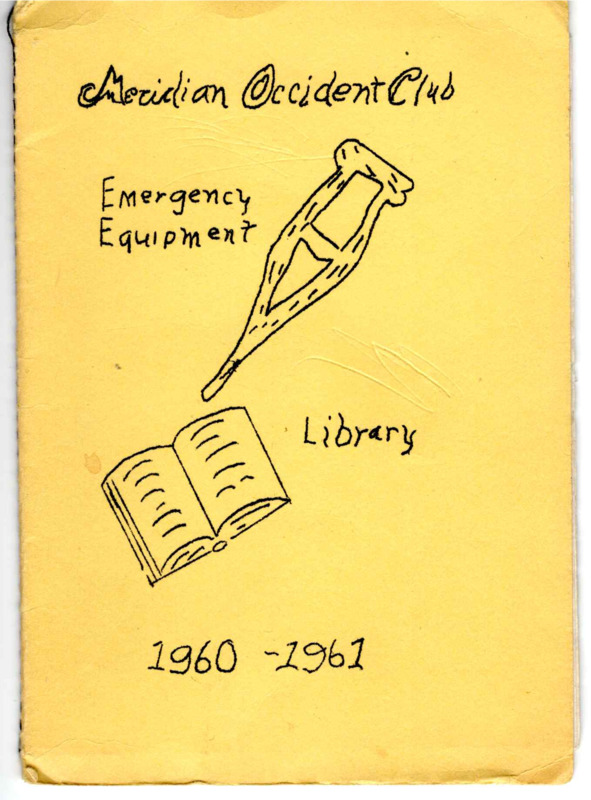 Meridian Occident Club
Emergency
Equipment
Library
1960 - 1961